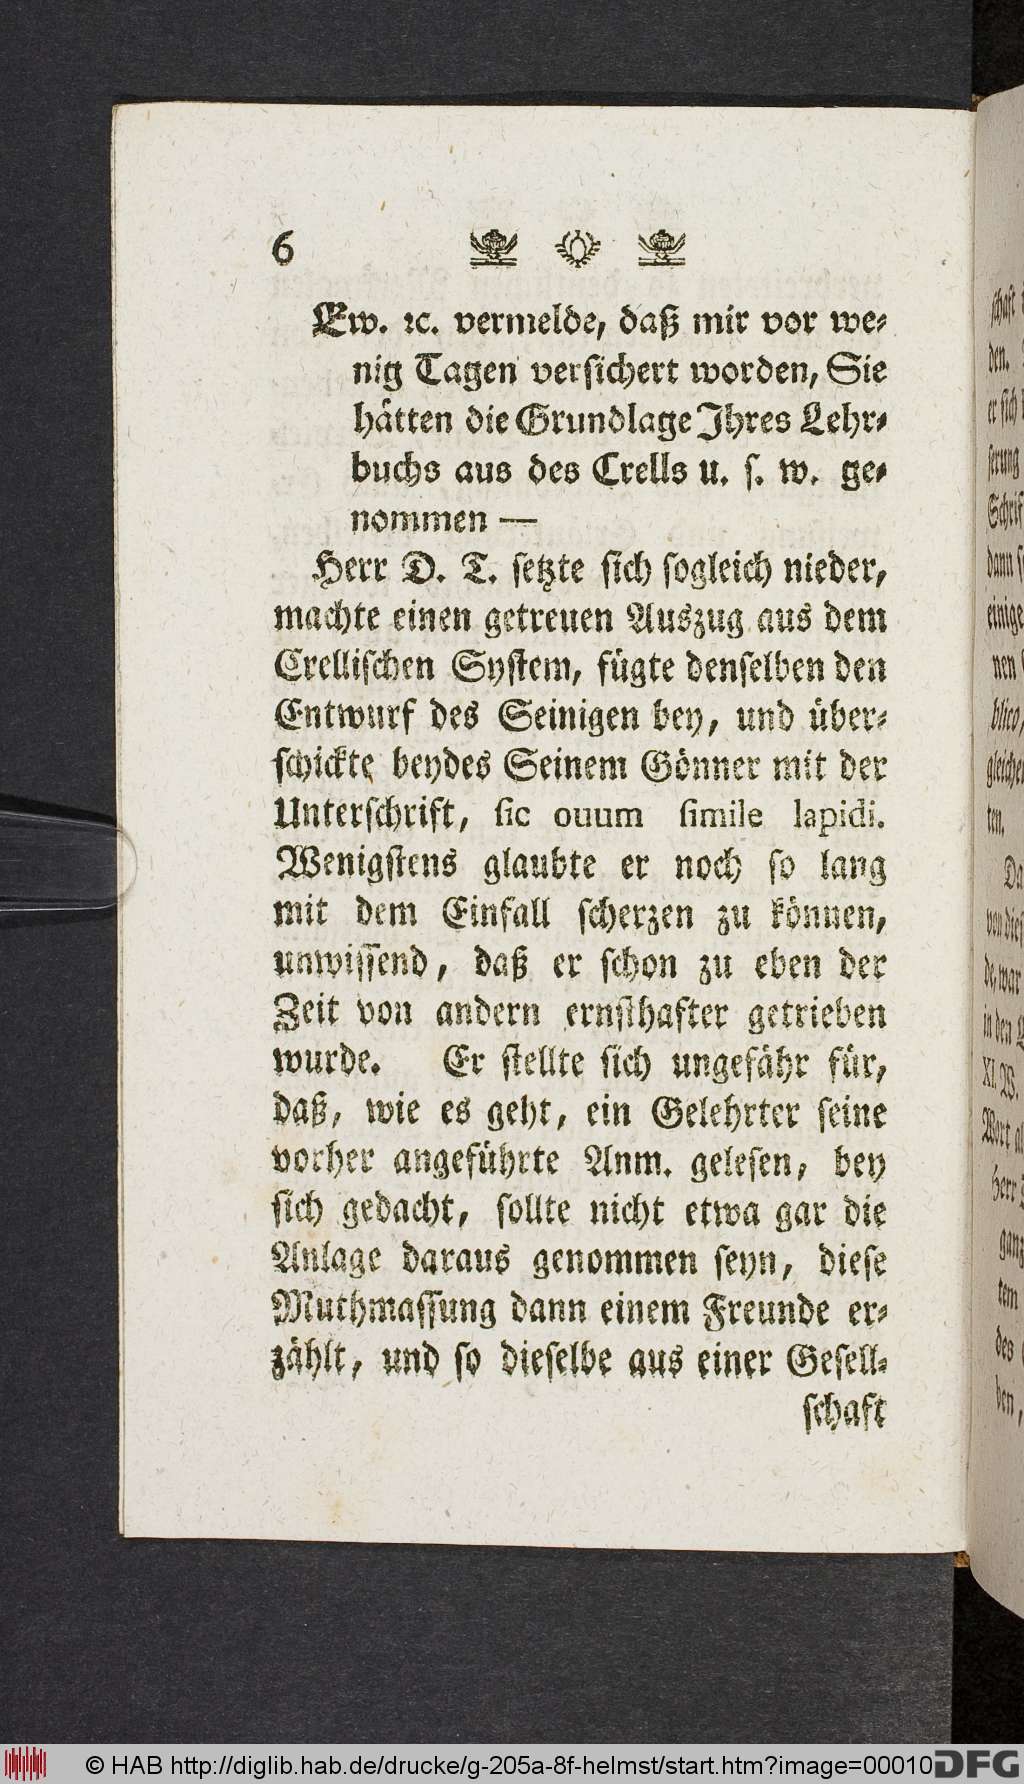 6
Ew. ꝛc. vermelde, daß mir vor we⸗
nig Tagen versichert worden, Sie
hätten die Grundlage Ihres Lehr⸗
buchs aus des Crells u. s. w. ge⸗
nommen —
Herr D. T. setzte sich sogleich nieder,
machte einen getreuen Auszug aus dem
Crellischen System, fügte denselben den
Entwurf des Seinigen bey, und über⸗
schickte beydes Seinem Gönner mit der
Unterschrift, sic ouum simile lapidi.
Wenigstens glaubte er noch so lang
mit dem Einfall scherzen zu können,
unwissend, daß er schon zu eben der
Zeit von andern ernsthafter getrieben
wurde. Er stellte sich ungefähr für,
daß, wie es geht, ein Gelehrter seine
vorher angeführte Anm. gelesen, bey
sich gedacht, sollte nicht etwa gar die
Anlage daraus genommen seyn, diese
Muthmassung dann einem Freunde er⸗
zählt, und so dieselbe aus einer Gesell⸗
schaft
© HAB http://diglib.hab.de/drucke/g-205a-8f-helmst/start.htm?image=00010
DFG